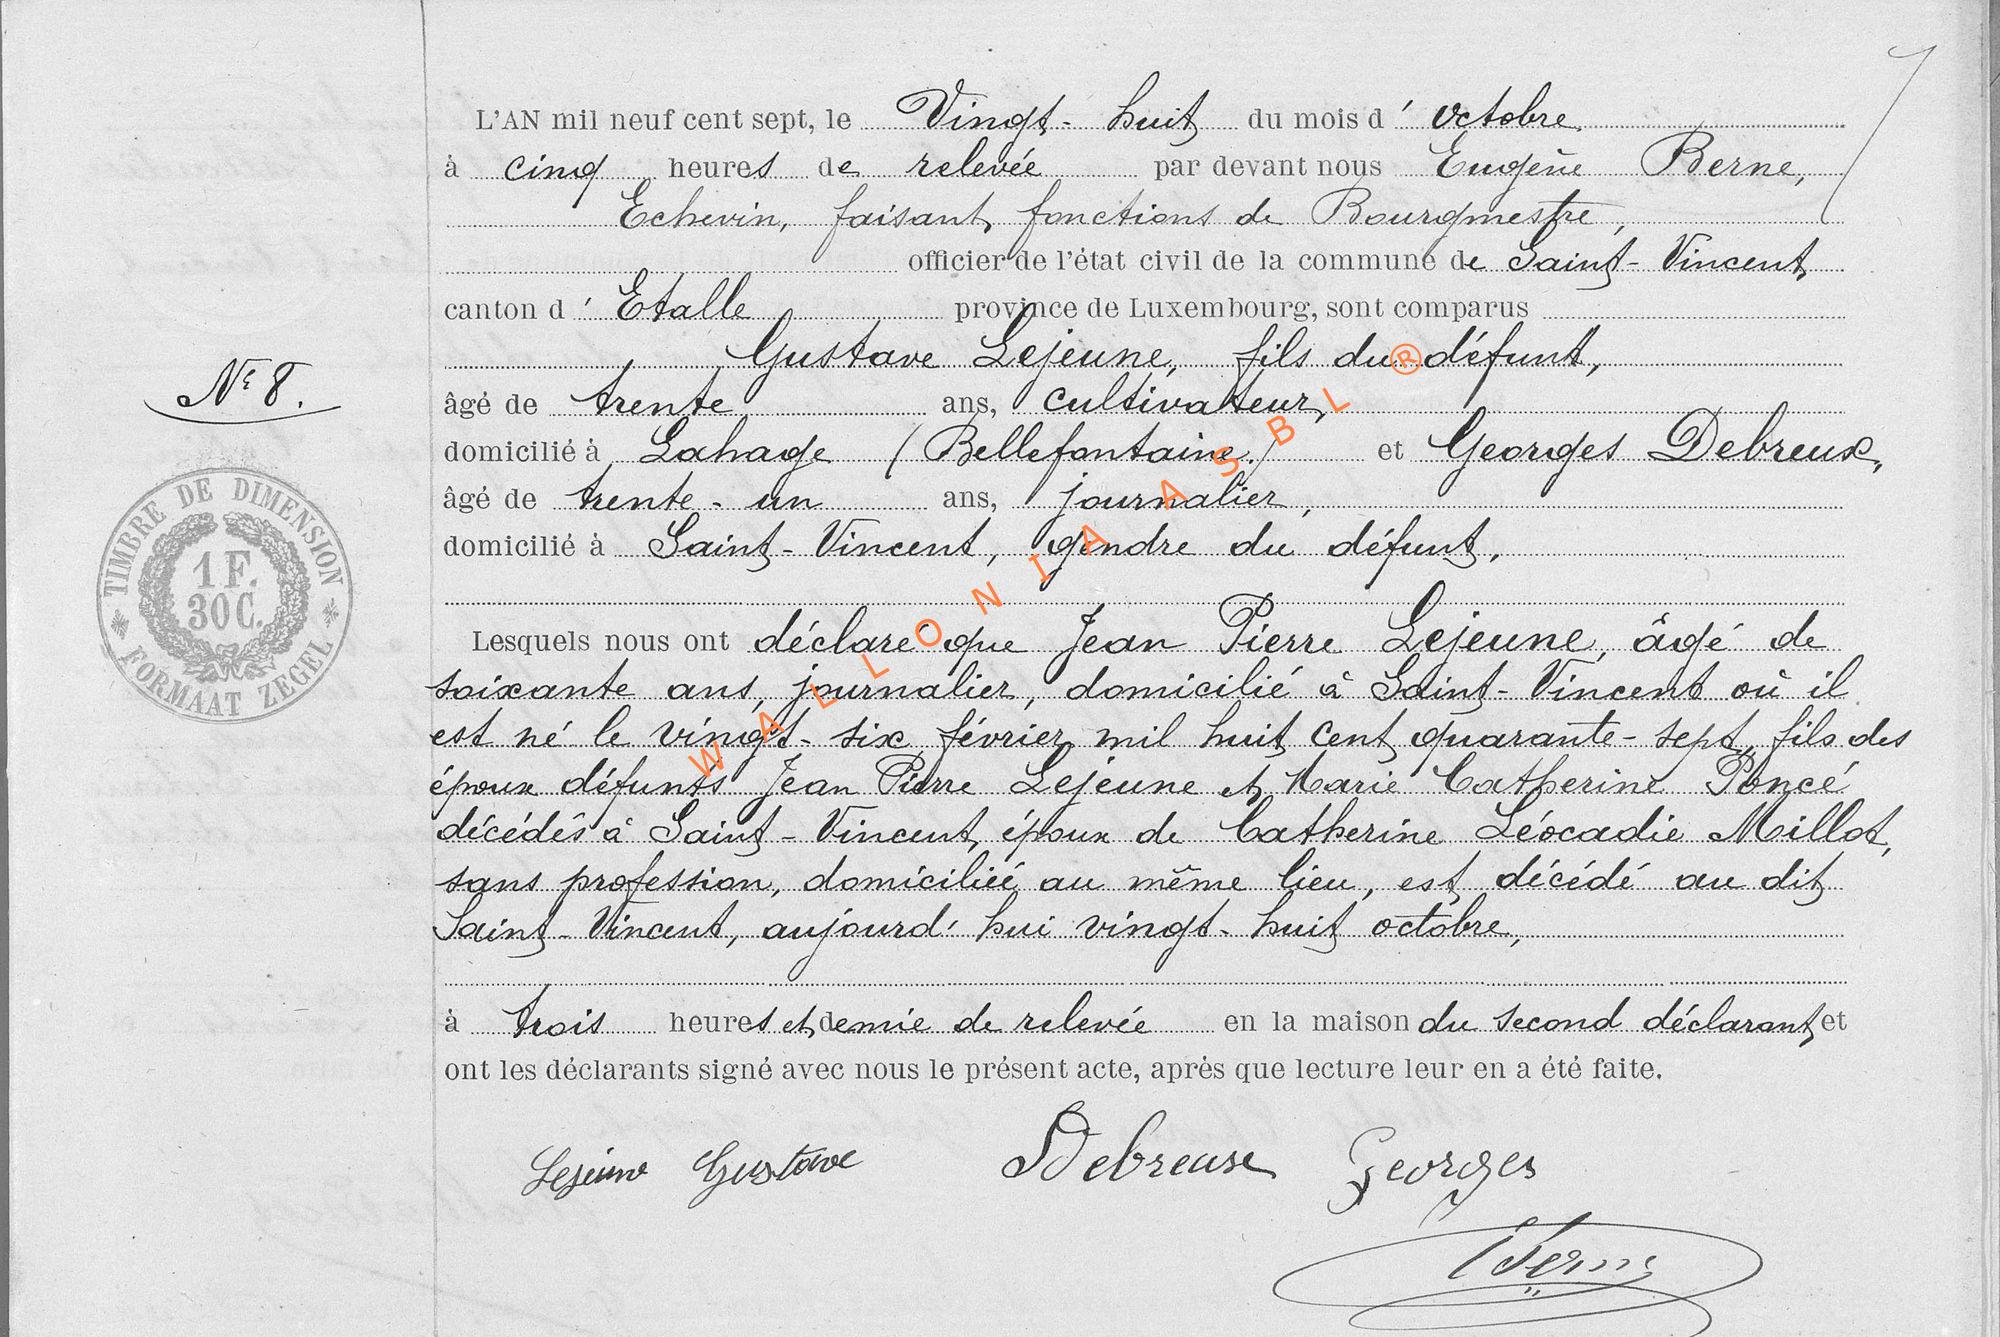 L'AN mil neuf cent sept, le Vingt-huit du mois d'octobre,
à cinq heures de relevée par devant nous Eugène Berne,
Echevin, faisant fonctions de Bourgmestre,
officier de l'état civil de la commune de Saint-Vincent,
canton d'Etalle province de Luxembourg, sont comparus
Gustave Lejeune, fils du défunt,
âgé de trente ans, cultivateur,
domicilié à Lahage (Bellefontaine) et Georges Debreux,
âgé de trente-un ans, journalier,
domicilié à Saint-Vincent, gendre du défunt,
Lesquels nous ont déclaré que Jean Pierre Lejeune, âgé de
soixante ans, journalier, domicilié à Saint-Vincent où il
est né le vingt-six février mil huit cent quarante-sept, fils des
époux défunts Jean Pierre Lejeune et Marie Catherine Poncé
décédés à Saint-Vincent, époux de Catherine Léocadie Millot,
sans profession, domiciliée au même lieu, est décédé au dit
Saint-Vincent, aujourd'hui vingt-huit octobre,
à trois heures et demie de relevée en la maison du second déclarant et
ont les déclarants signé avec nous le présent acte, après que lecture leur en a été faite.
Lejeune Gustave Debreux Georges
Berne
N° 8.
TIMBRE DE DIMENSION
1 F.
30 C.
FORMAAT ZEGEL
WALLONIA ASBL ®